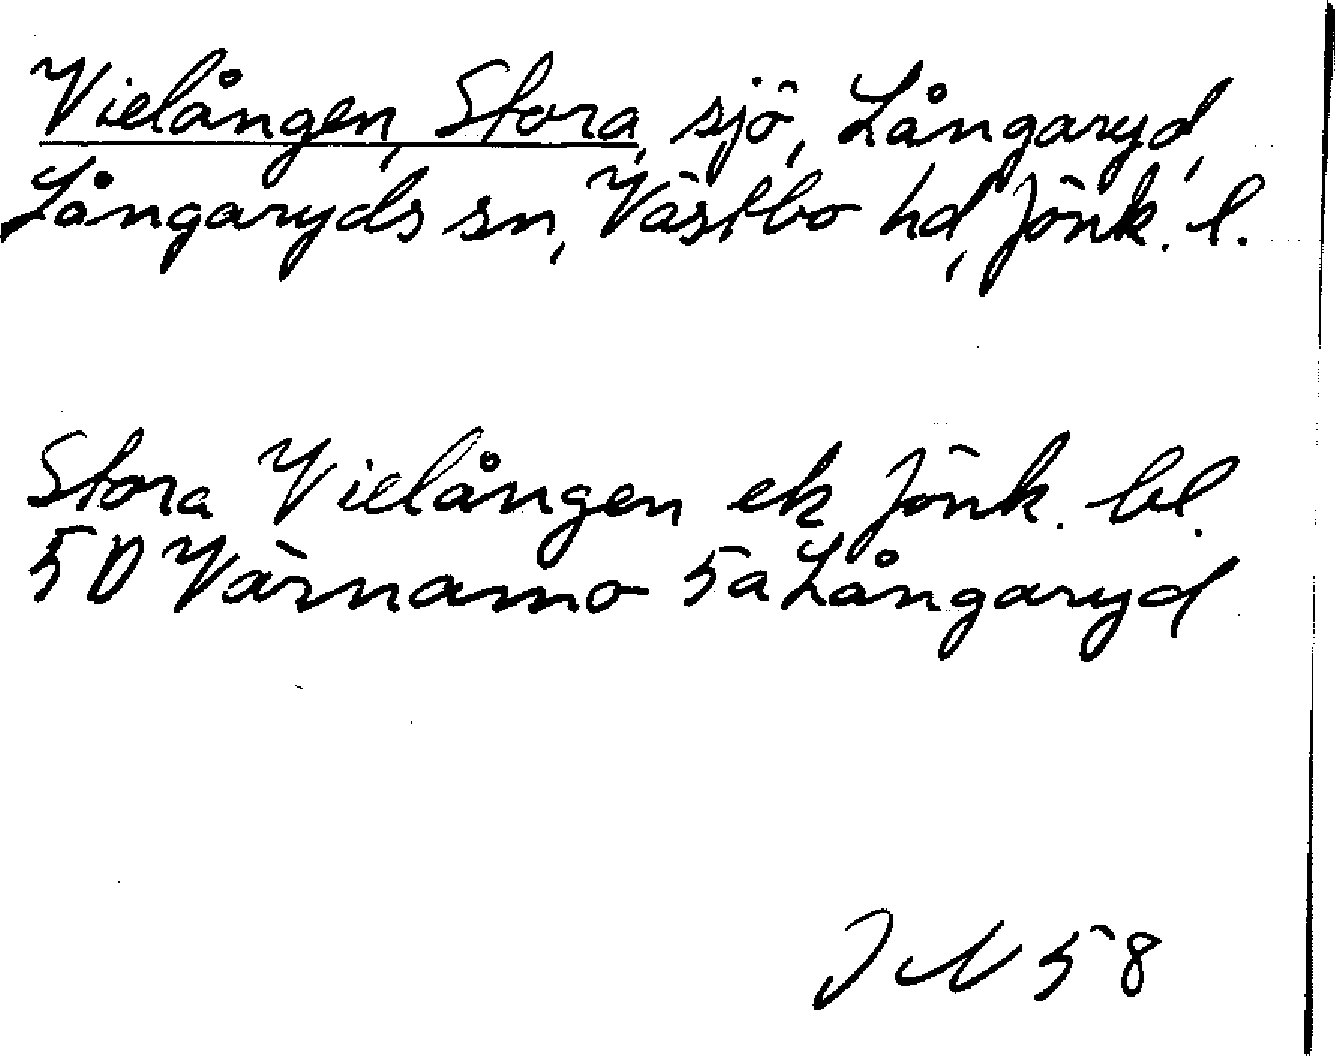 Vielången, Stora, sjö, Långaryd,
Långaryds sn, Västbo hd, Jönk. l.
Stora Vielången ek Jönk. bl.
5D Värnamo 5a Långaryd
JN 58